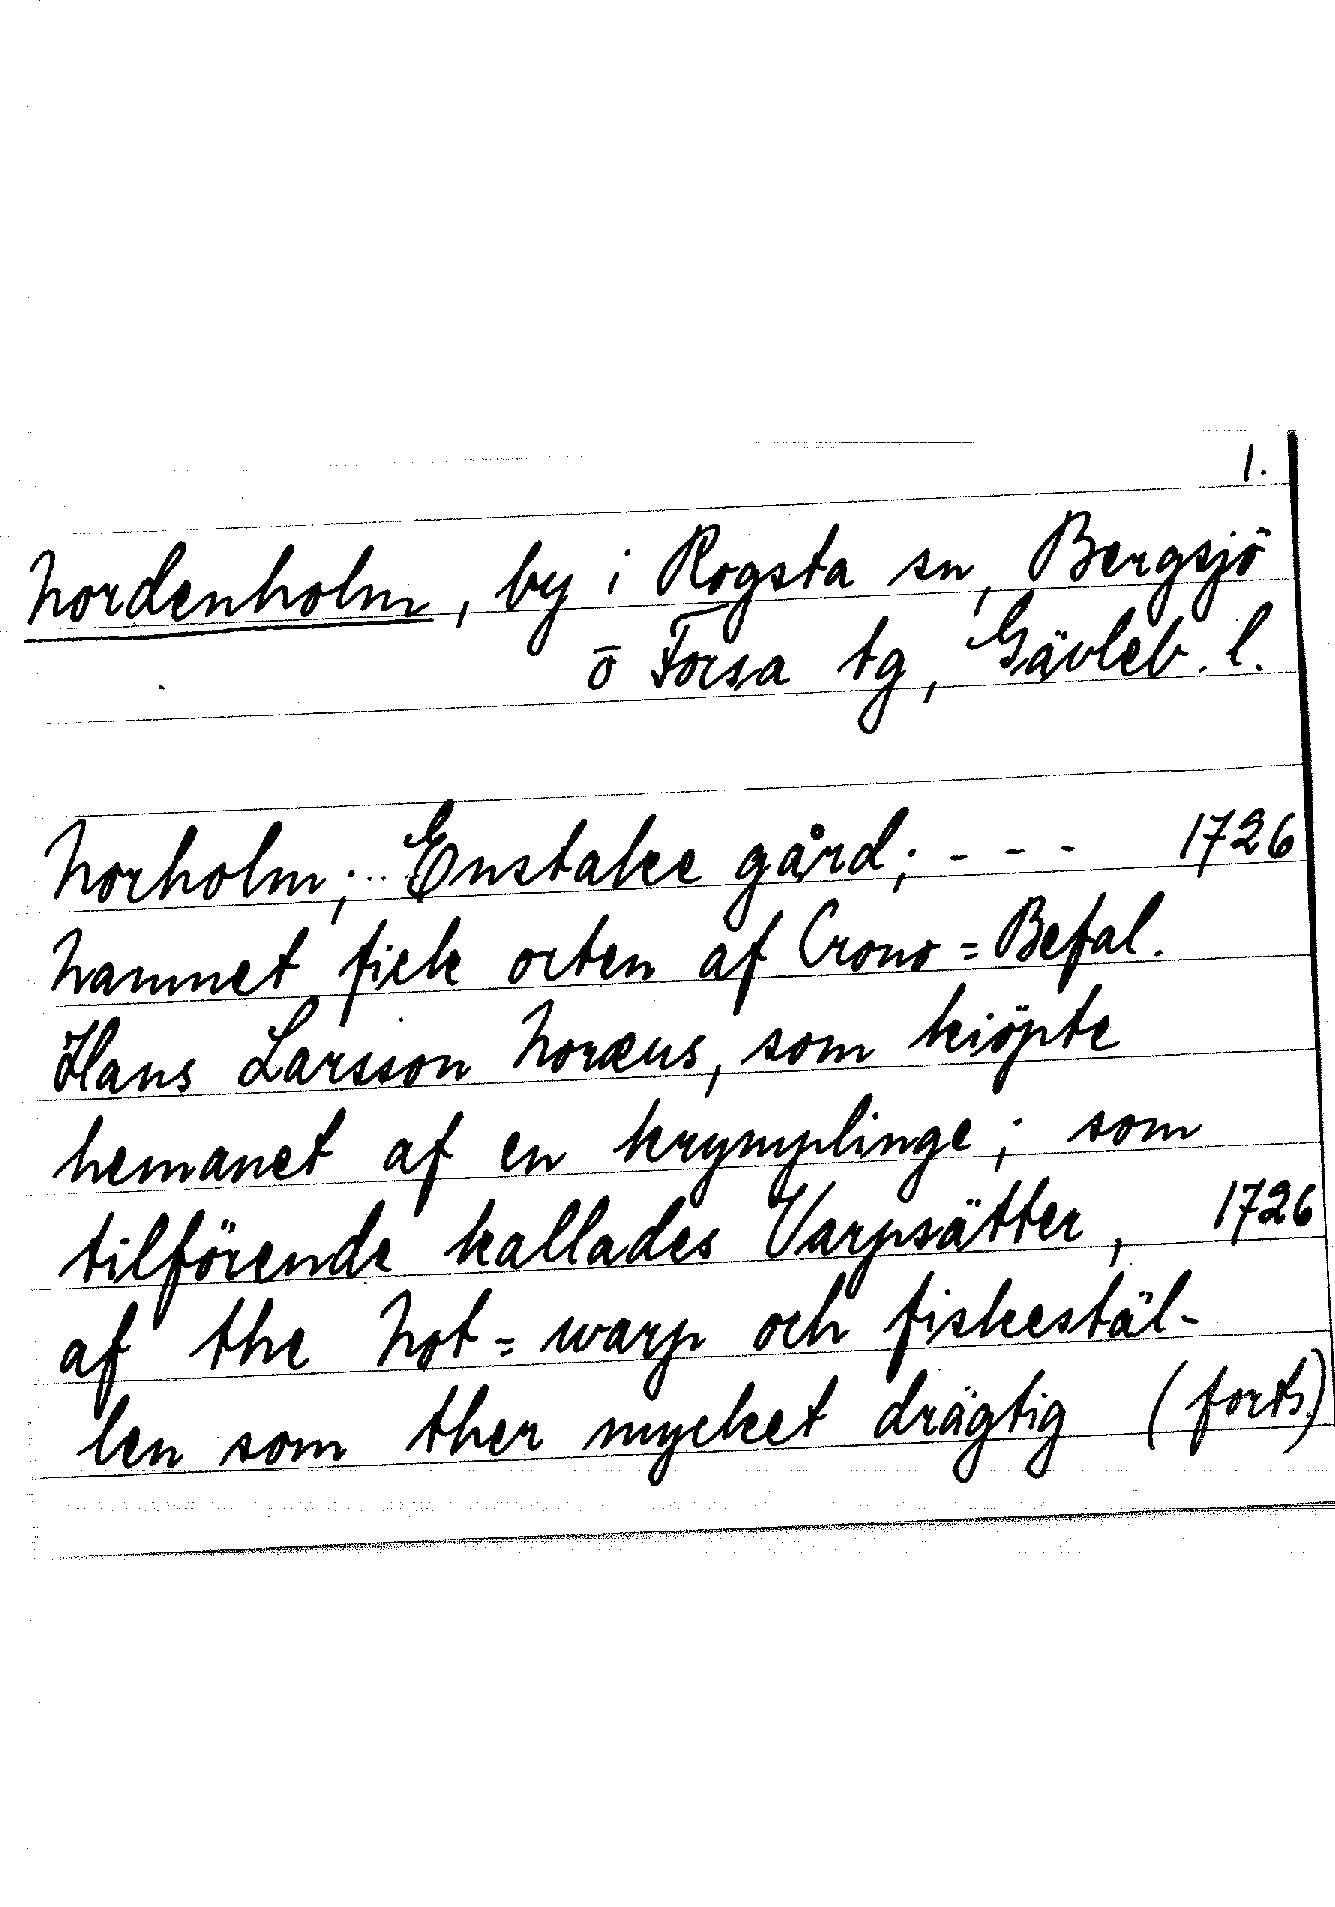 1.
Nordenholm, by i Rogsta sn, Bergsjö
o Forsa tg, Gävleb. l.
Norholm; Enstake gård; - - - 1726
Namnet fick orten af Crono=Befal.
Hans Larsson Noræus, som kiöpte
hemanet af en krymplinge; som
tilförende kallades Varpsätter, 1726
af the Not=warp och fiskestäl-
len som ther mycket drägtig (forts.)